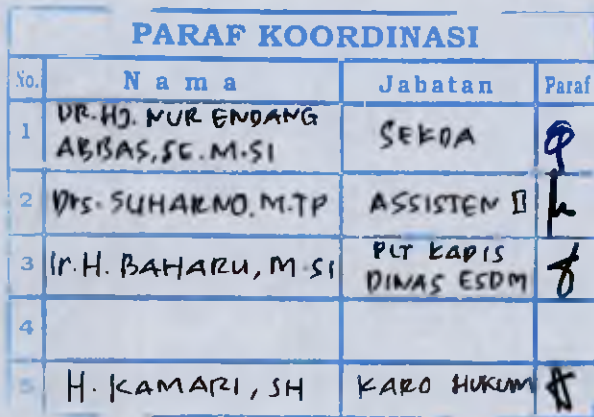 PARAF KOORDINASI
No. Nama Jabatan Paraf
1 DR. HJ. NUR ENDANG ABBAS, SE. M.SI SEKDA
2 Drs. SUHARNO. M.TP ASSISTEN II
3 Ir. H. BAHARU, M.SI PLT KADIS DINAS ESDM
4
5 H. KAMARI, SH KARO HUKUM